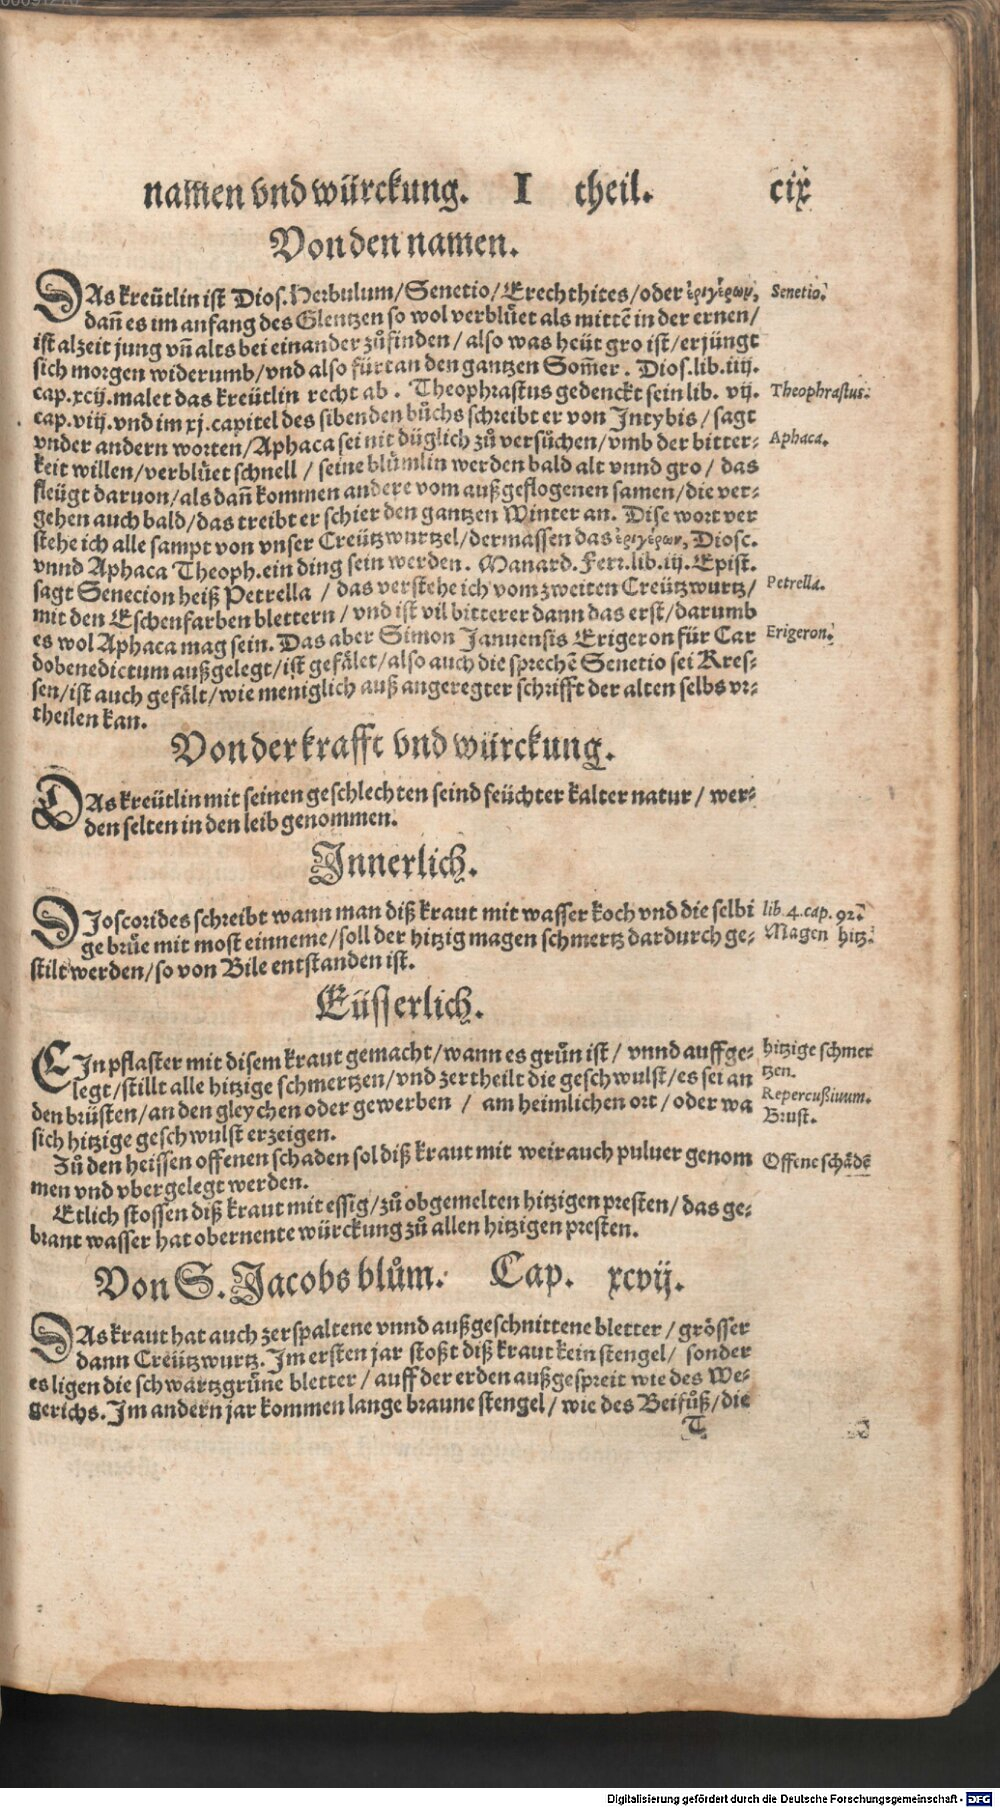 namen vnd würckung. I theil. cix
Von den namen.
DAs kreütlin ist Dios. Herbulum/Senetio/Erechthites/oder ἐριγέρων, Senetio.
dañ es im anfang des Glentzen so wol verblüet als mittē in der ernen/
ist alzeit jung vñ alts bei einander zůfinden/also was heüt gro ist/erjüngt
sich morgen widerumb/vnd also fürtan den gantzen Som̃er. Dios.lib.iiij.
cap.xcij.malet das kreütlin recht ab. Theophrastus gedenckt sein lib. vij. Theophrastus.
cap.viij.vnd im xj.capitel des sibenden bůchs schreibt er von Intybis/sagt
vnder andern worten/Aphaca sei nit düglich zů versůchen/vmb der bitter- Aphaca.
keit willen/verblüet schnell/seine blůmlin werden bald alt vnnd gro/das
fleügt daruon/als dañ kommen andere vom außgeflogenen samen/die ver-
gehen auch bald/das treibt er schier den gantzen Winter an. Dise wort ver
stehe ich alle sampt von vnser Creützwurtzel/dermassen das ἐριγέρων, Diosc.
vnnd Aphaca Theoph.ein ding sein werden. Manard. Fert.lib.iij.Epist.
sagt Senecion heiß Petrella/das verstehe ich vom zweiten Creützwurtz/ Petrella.
mit den Eschenfarben blettern/vnd ist vil bitterer dann das erst/darumb
es wol Aphaca mag sein. Das aber Simon Januensis Erigeron für Car Erigeron.
dobenedictum außgelegt/ist gefälet/also auch die sprechē Senetio sei Kres-
sen/ist auch gefält/wie meniglich auß angeregter schrifft der alten selbs vr-
theilen kan.
Von der krafft vnd würckung.
DAs kreütlin mit seinen geschlechten seind feüchter kalter natur/wer-
den selten in den leib genommen.
Innerlich.
DIoscorides schreibt wann man diß kraut mit wasser koch vnd die selbi lib.4.cap.92.
ge brüe mit most einneme/soll der hitzig magen schmertz dardurch ge- Magen hitz.
stilt werden/so von Bile entstanden ist.
Eüsserlich.
EIn pflaster mit disem kraut gemacht/wann es grün ist/vnnd auffge- hitzige schmer
legt/stillt alle hitzige schmertzen/vnd zertheilt die geschwulst/es sei an tzen.
den brüsten/an den gleychen oder gewerben/am heimlichen ort/oder wa Repercußiuum.
sich hitzige geschwulst erzeigen. Brust.
Zů den heissen offenen schaden sol diß kraut mit weirauch puluer genom Offene schädē
men vnd vbergelegt werden.
Etlich stossen diß kraut mit essig/zů obgemelten hitzigen presten/das ge-
brant wasser hat obernente würckung zů allen hitzigen presten.
Von S. Jacobs blům. Cap. xcvij.
DAs kraut hat auch zerspaltene vnnd außgeschnittene bletter/grösser
dann Creützwurtz. Im ersten jar stoßt diß kraut kein stengel/sonder
es ligen die schwartzgrüne bletter/auff der erden außgespreit wie des We-
gerichs. Im andern jar kommen lange braune stengel/wie des Beifůß/die
T
Digitalisierung gefördert durch die Deutsche Forschungsgemeinschaft - DFG